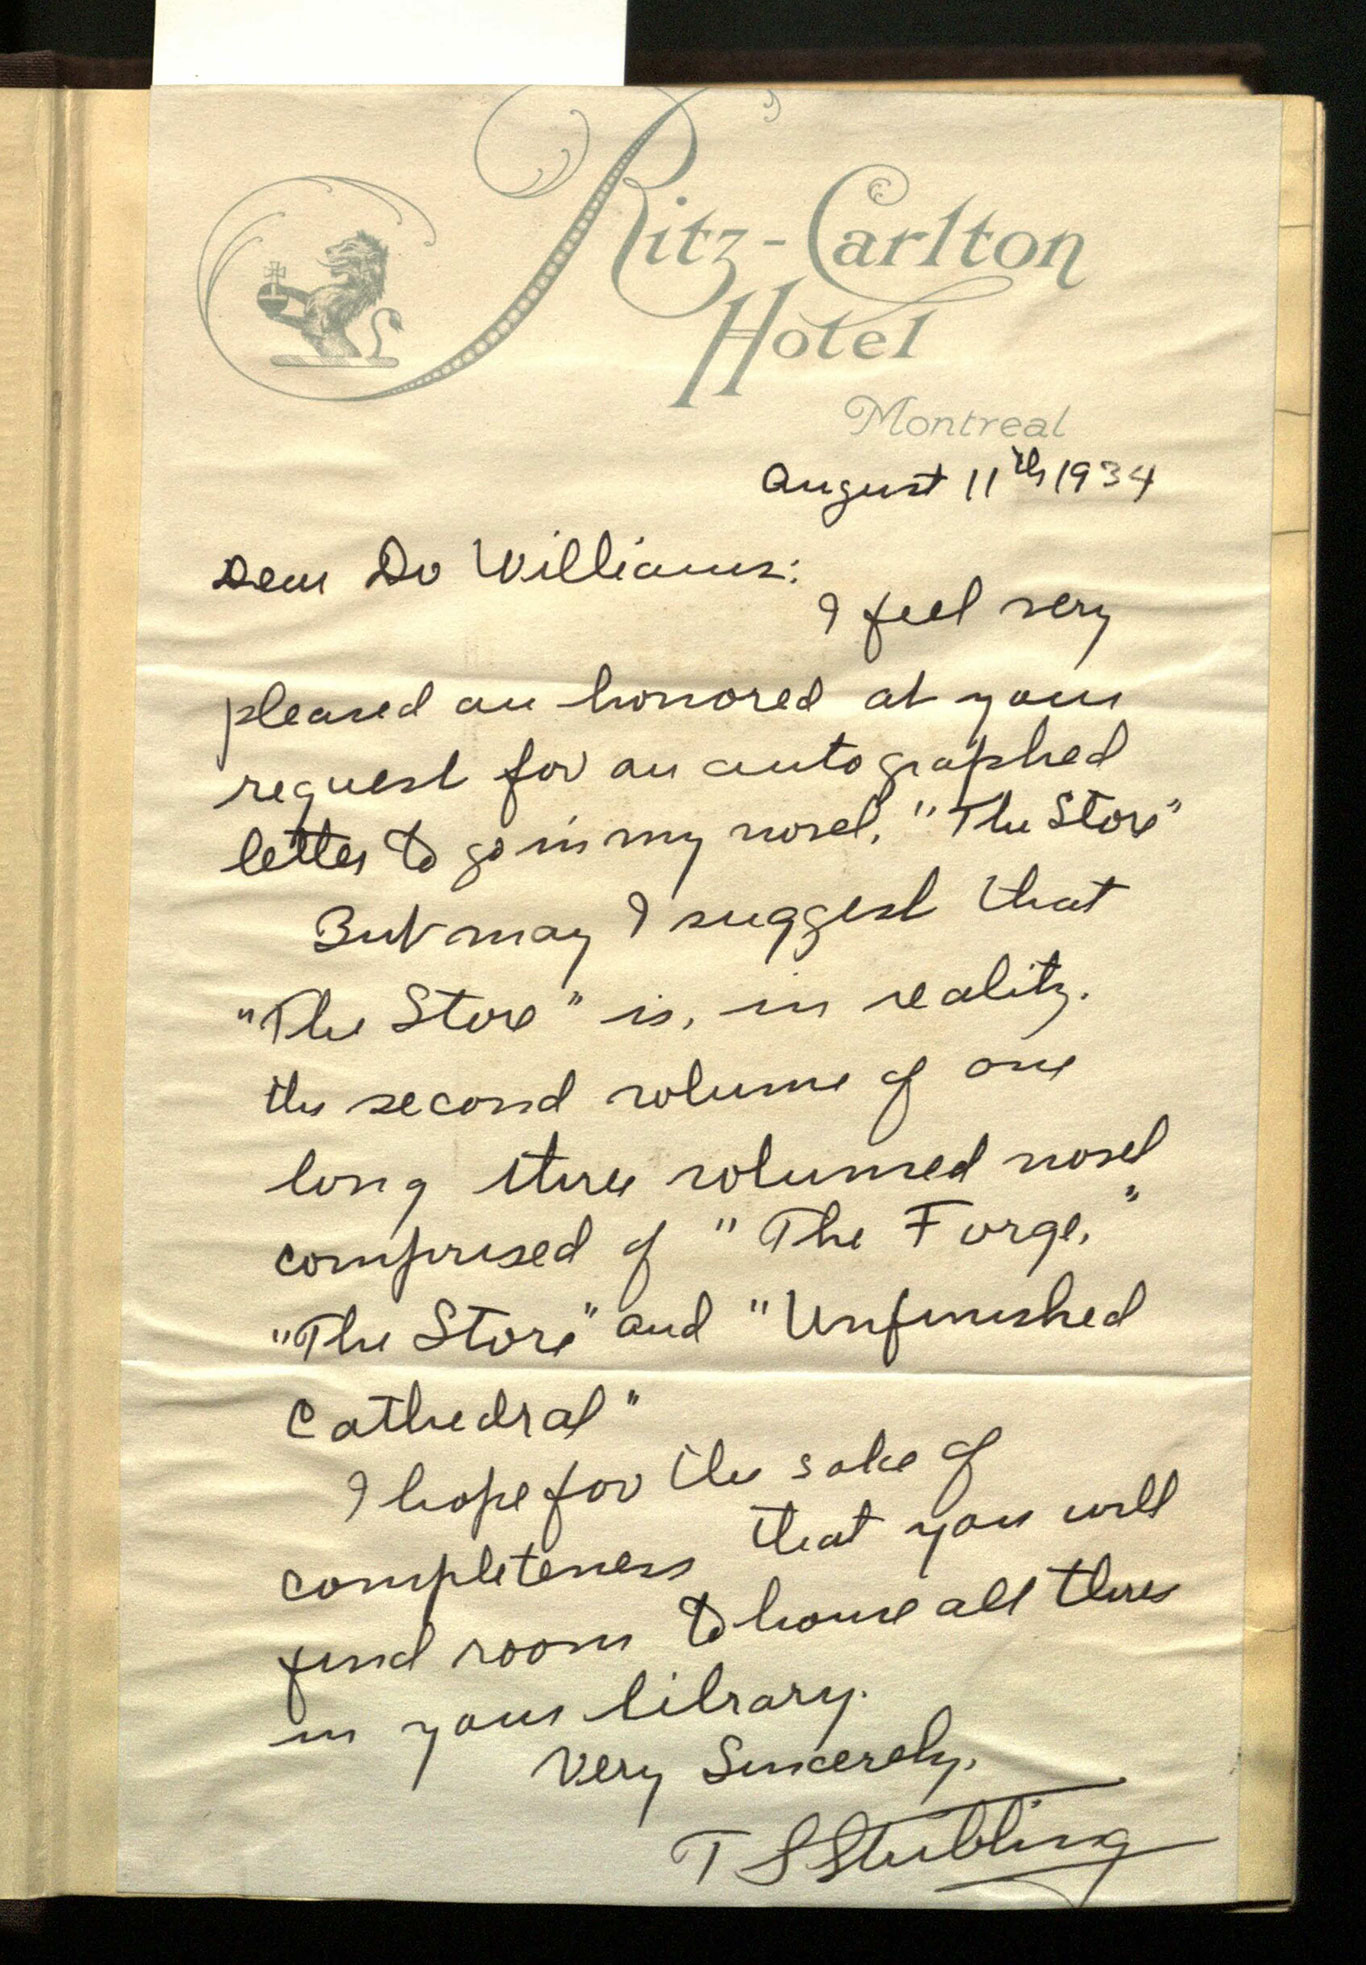 Ritz-Carlton
Hotel
Montreal
August 11th 1934
Dear Dr Williams:
I feel very
pleased an honored at your
request for an autographed
letter to go in my novel, "The Store"
But may I suggest that
"The Store" is, in reality,
the second volume of one
long three volumed novel
comprised of "The Forge,"
"The Store" and "Unfinished
Cathedral"
I hope for the sake of
completeness that you will
find room to house all three
in your library.
Very Sincerely,
T S Stribling